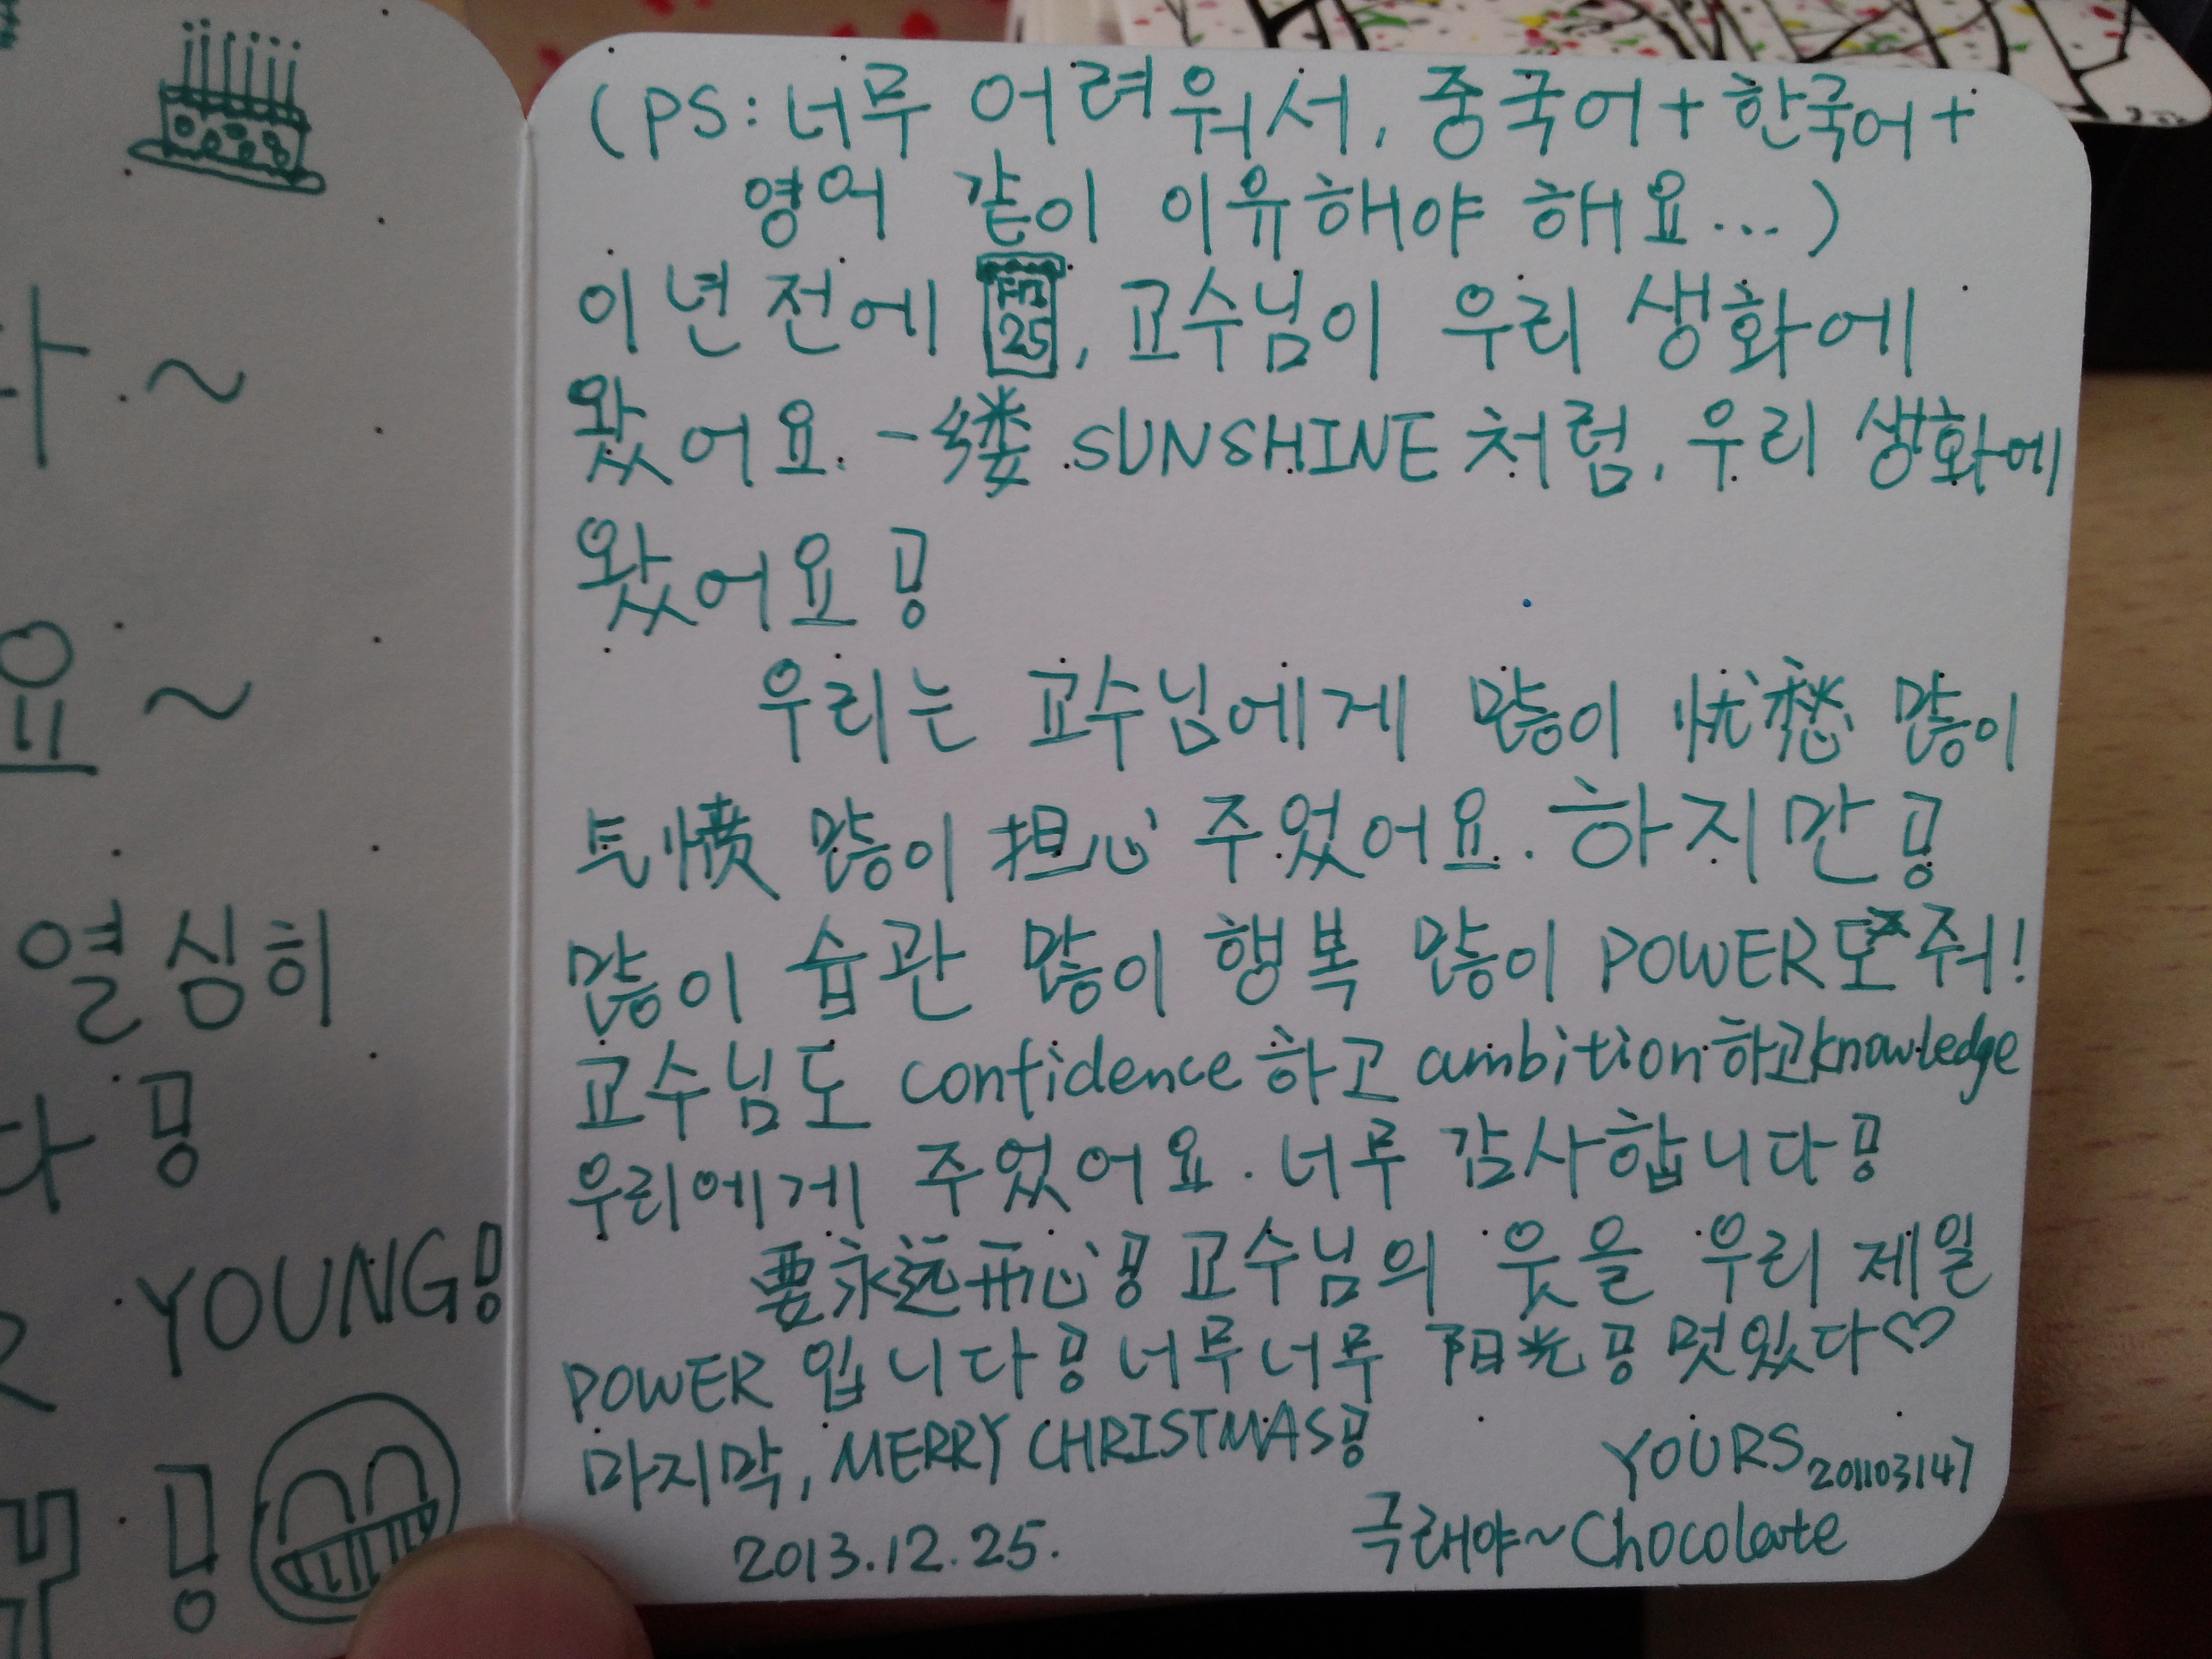 열심히
YOUNG!
(PS: 너무 어려워서, 중국어+한국어+
영어 같이 이유해야 해요...)
이년전에 25, 교수님이 우리 생화에
왔어요. 一缕 SUNSHINE처럼, 우리 생화에
왔어요!
우리는 교수님에게 많이 忧愁 많이
气愤 많이 担心 주었어요. 하지만!
많이 습관 많이 행복 많이 POWER도 주워!
교수님도 confidence하고 ambition하고 knowledge
우리에게 주었어요. 너무 감사합니다!
要永远开心! 교수님의 웃을 우리 제일
POWER 입니다! 너무너무 阳光! 멋있다♡
마지막, MERRY CHRISTMAS!
YOURS 201103147
2013.12.25. 극래야~Chocolate